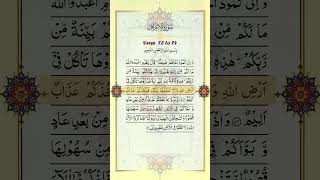 سورة الأعراف
Verse 73 to 74
بِسْمِ اللَّهِ الرَّحْمَٰنِ الرَّحِيمِ
وَإِلَىٰ ثَمُودَ أَخَاهُمْ صَالِحًا قَالَ يَا قَوْمِ اعْبُدُوا اللَّهَ
مَا لَكُمْ مِنْ إِلَٰهٍ غَيْرُهُ قَدْ جَاءَتْكُمْ بَيِّنَةٌ مِنْ
رَبِّكُمْ هَٰذِهِ نَاقَةُ اللَّهِ لَكُمْ آيَةً فَذَرُوهَا تَأْكُلْ فِي
أَرْضِ اللَّهِ وَلَا تَمَسُّوهَا بِسُوءٍ فَيَأْخُذَكُمْ عَذَابٌ
أَلِيمٌ وَاذْكُرُوا إِذْ جَعَلَكُمْ خُلَفَاءَ مِنْ بَعْدِ عَادٍ
وَبَوَّأَكُمْ فِي الْأَرْضِ تَتَّخِذُونَ مِنْ سُهُولِهَا
قُصُورًا وَتَنْحِتُونَ الْجِبَالَ بُيُوتًا فَاذْكُرُوا آلَاءَ
اللَّهِ وَلَا تَعْثَوْا فِي الْأَرْضِ مُفْسِدِينَ